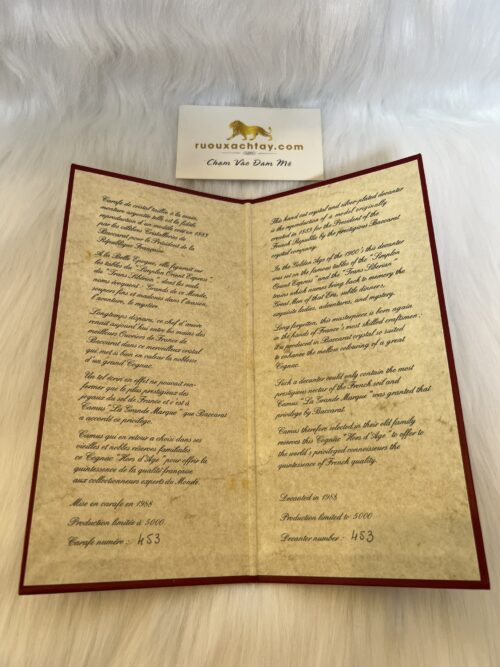 ruouxachtay.com
Chạm Vào Đam Mê
Carafe de cristal taillée à la main,
monture argentée telle est la fidèle
reproduction d'un modèle créé en 1883
par les célèbres Cristalleries de
Baccarat pour le Président de la
République Française.
A la Belle Epoque, elle figurait sur
les tables du "Simplon Orient Express"
du "Trans Sibérien", dont les seuls
noms évoquent : Grands de ce Monde,
soupers fins et madones dans l'écrin,
l'aventure, le mystère.
Longtemps disparu, ce chef d'œuvre
renaît aujourd'hui entre les mains des
meilleurs Ouvriers de France de
Baccarat dans ce merveilleux cristal
qui met si bien en valeur la noblesse
d'un grand Cognac.
Un tel écrin en effet ne pouvait ren-
fermer que le plus prestigieux des
joyaux du sol de France et c'est à
Camus "La Grande Marque" que Baccarat
a accordé ce privilège.
Camus qui en retour a choisi dans ses
vieilles et nobles réserves familiales
ce Cognac "Hors d'Age" pour offrir la
quintessence de la qualité française
aux collectionneurs experts du Monde.
Mise en carafe en 1988
Production limitée à 5000
Carafe numéro : 453
This hand cut crystal and silver plated decanter
is the reproduction of a model originally
created in 1883 for the President of the
French Republic by the prestigious Baccarat
crystal company.
In the Golden Age of the 1900's this decanter
was set on the famous tables of the "Simplon
Orient Express" and the "Trans Siberian"
trains which names bring back to memory the
Great Men of that Era, subtle dinners,
exquisite ladies, adventures, and mystery.
Long forgotten, this masterpiece is born again
in the hands of France's most skilled craftsmen :
It's produced in Baccarat crystal so suited
to enhance the mellow colouring of a great
Cognac.
Such a decanter could only contain the most
prestigious nectar of the French soil and
Camus "La Grande Marque" was granted that
privilege by Baccarat.
Camus therefore selected in their old family
reserves this Cognac "Hors d'Age" to offer to
the world's privileged connoisseurs the
quintessence of French quality.
Decanted in 1988
Production limited to 5000
Decanter number : 453